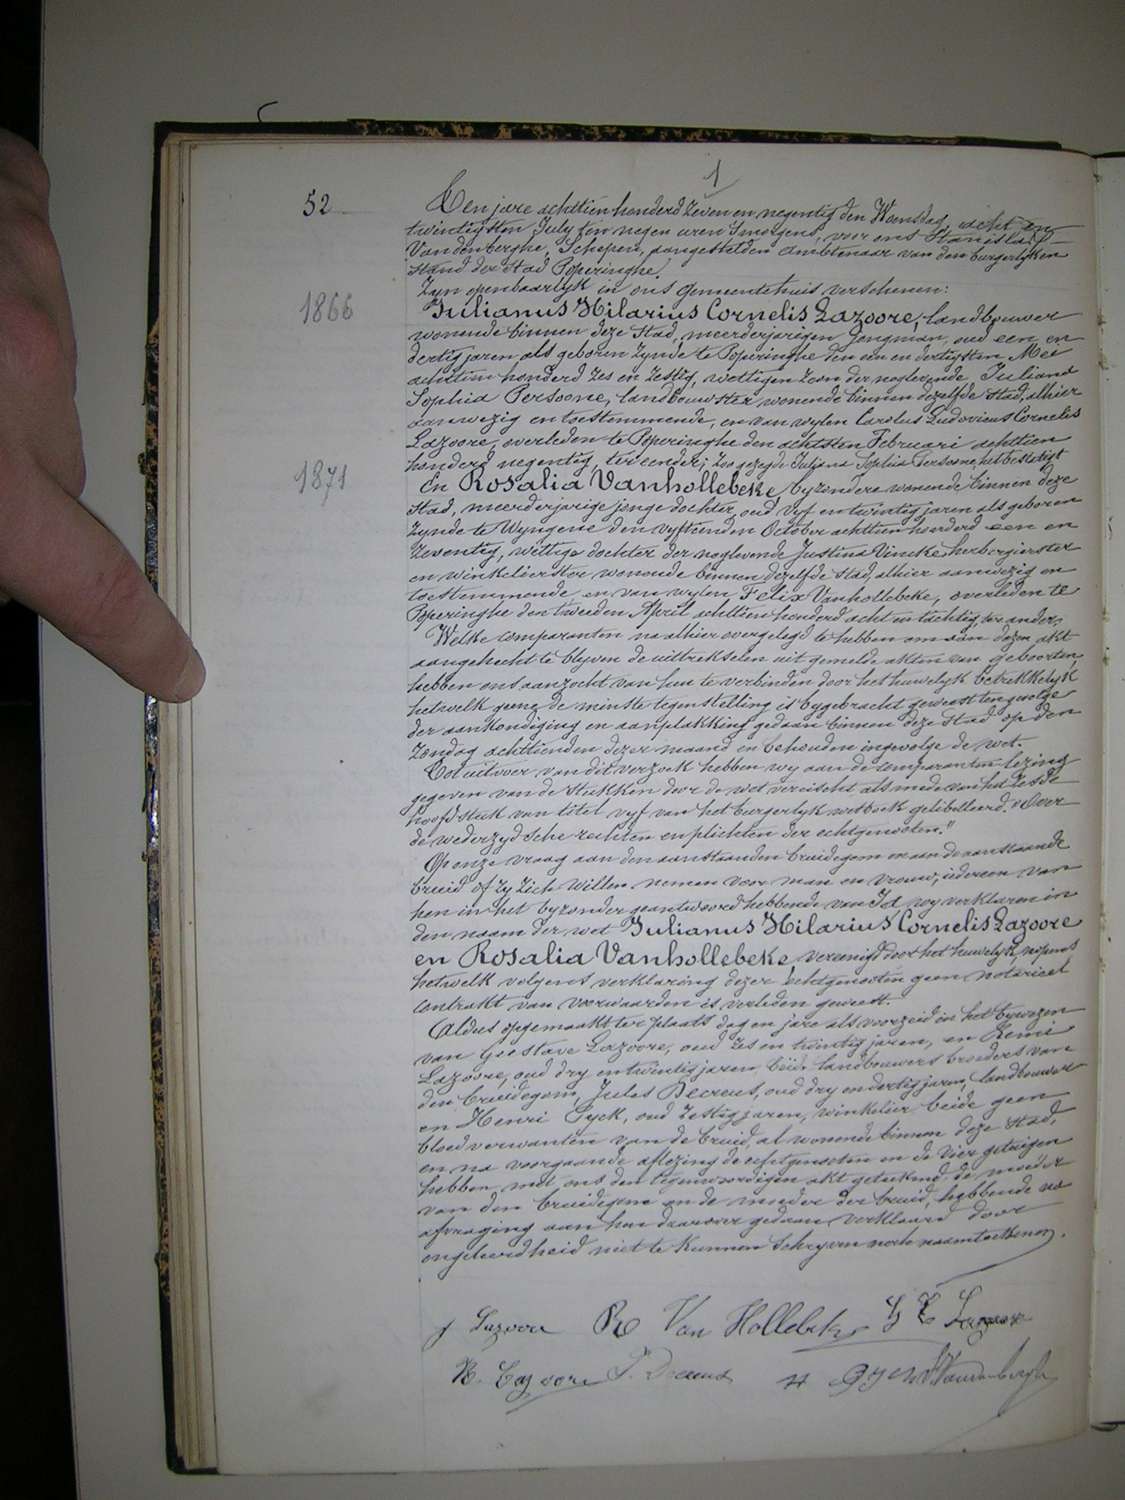 1
52
Ten jare achttien honderd zeven en negentig den Woensdag, acht en
twintigsten July ten negen uren 's morgens, voor ons Stanislas
Vandenberghe, Schepen, aangestelden ambtenaar van den burgerlyken
stand der stad Poperinghe.
Zyn openbaarlyk in ons gemeentehuis verschenen:
1866
Julianus Hilarius Cornelis Lazoore, landbouwer
wonende binnen deze stad, meerderjarigen jongman, oud een en
dertig jaren als geboren zynde te Poperinghe den een en dertigsten Mei
achttien honderd zes en zestig, wettigen zoon der nog levende Juliana
Sophia Persoone, landbouwster wonende binnen dezelfde stad, alhier
aanwezig en toestemmende, en van wylen Carolus Ludovicus Cornelis
Lazoore, overleden te Poperinghe den achtsten Februari achttien
honderd negentig, ter eender; zoo gezegde Juliana Sophia Persoone het bevestigt
1871
En Rosalia Vanhollebeke, byzondere wonende binnen deze
stad, meerderjarige jonge dochter, oud vyf en twintig jaren als geboren
zynde te Wyngene den vyftienden October achttien honderd een en
zeventig, wettige dochter der nog levende Justina Vincke herbergierster
en winkelierster wonende binnen dezelfde stad, alhier aanwezig en
toestemmende, en van wylen Felix Vanhollebeke, overleden te
Poperinghe den tweeden April achttien honderd acht en tachtig, ter ander.
Welke comparanten na alhier overgelegd te hebben om aan dezen akt
aangehecht te blyven de uittrekselen uit gemelde akten van geboorten,
hebben ons aanzocht van hun te verbinden door het huwelyk betrekkelyk
hetwelk geene de minste tegenstelling is bygebracht geweest ten gevolge
der aankondiging en aanplakking gedaan binnen deze stad op den
zondag achttienden dezer maand en behouden ingevolge de wet.
Tot uitvoer van dit verzoek hebben wy aan de comparanten lezing
gegeven van de stukken door de wet vereischt als mede van het zesde
hoofdstuk van titel vyf van het burgerlyk wetboek getibelleerd "Over
de wederzydsche rechten en plichten der echtgenooten."
Op onze vraag aan den aanstaanden bruidegom en aan de aanstaande
bruid of zy zich willen nemen voor man en vrouw, iedereen van
hen in het byzonder geantwoord hebbende van Ja, wy verklaren in
den naam der wet Julianus Hilarius Cornelis Lazoore
en Rosalia Vanhollebeke, vereenigd door het huwelyk, nopens
hetwelk volgens verklaring dezer echtgenooten geen notarieel
contrakt van voorwaarden is verleden geweest.
Aldus opgemaakt ter plaats dag en jare als voorzeid in het bywezen
van Gustave Lazoore, oud zes en twintig jaren, en Remi
Lazoore, oud dry en twintig jaren, beide landbouwers broeders van
den bruidegom, Jules Decreus, oud dry en dertig jaren, landbouwer
en Henri Gyck, oud zestig jaren, winkelier beide geen
bloedverwanten van de bruid, al wonende binnen deze stad,
en na voorgaande aflezing de echtgenooten en de vier getuigen
hebben met ons den tegenwoordigen akt geteekend, de moeder
van den bruidegom en de moeder der bruid, hebbende na
afvraging aan hen daarover gedaan verklaard door
ongeleerdheid niet te kunnen schryven noch naamteekenen.
J Lazoore R Van Hollebeke G C Lazoore
R. Lazoore J. Decreus H Vandenberghe